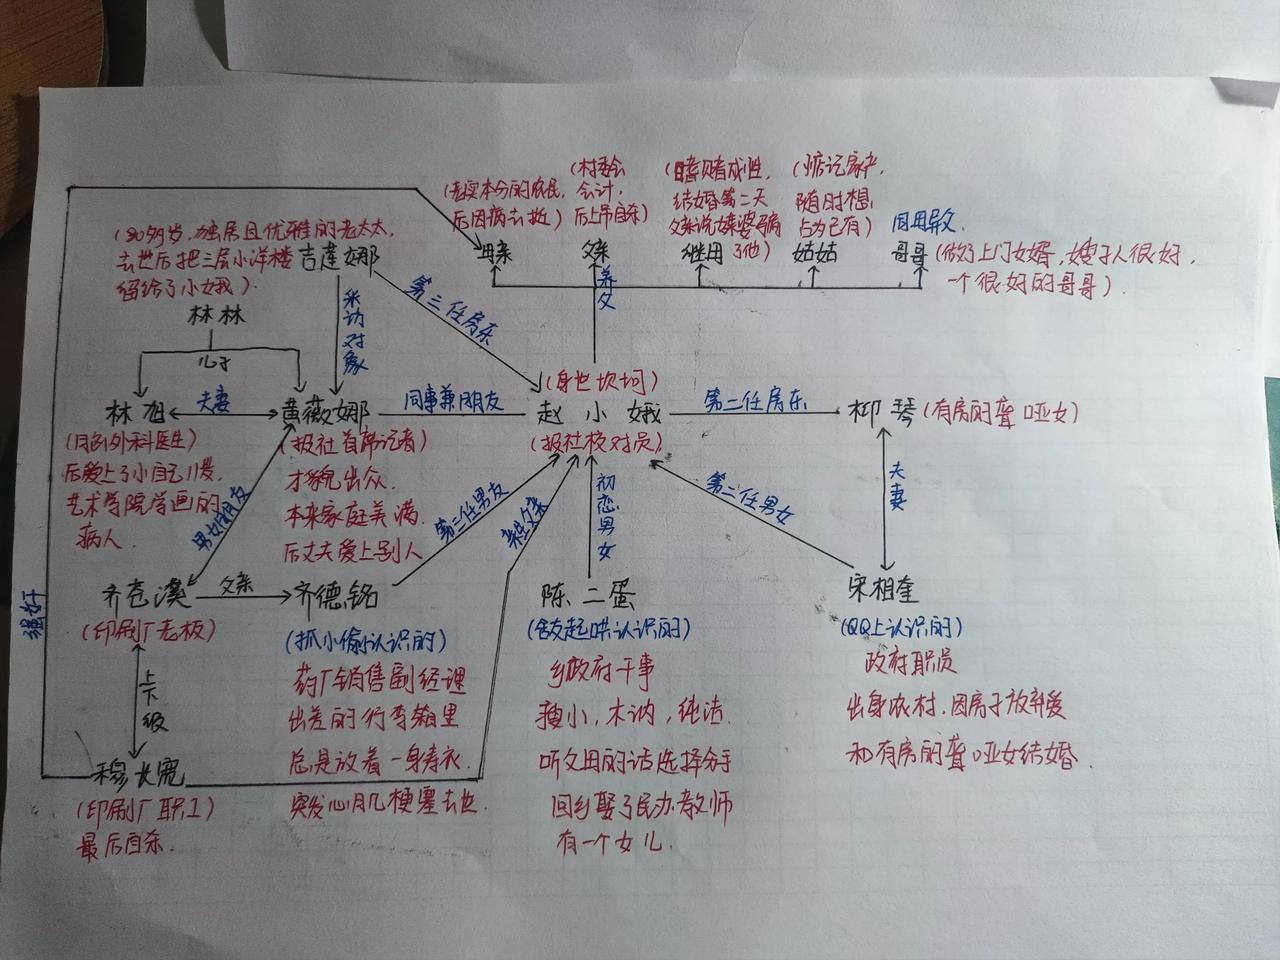 (老实本分的农民,
后因病去逝)
母亲
(村委会
会计,
后上吊自杀)
父亲
(嗜赌成性,
结婚第二天
父亲说媒婆骗
了他)
继母
(惦记家产,
随时想
占为己有)
姑姑
同母异父
哥哥
(做了上门女婿,嫂子人很好,
一个很好的哥哥).
养父
(80多岁,独居且优雅的老太太,
去世后把三层小洋楼
留给了小娥).
吉莲娜
采访对象
第三任房东
林林
儿子
林旭
夫妻
黄薇娜
同事兼朋友
(身世坎坷)
赵小娥
(报社校对员)
第二任房东
柳琴
(有房的聋哑女)
外科医生)
后爱上了小自己
艺术学院学画的
病人.
(报社首席记者)
才貌出众.
本来家庭美满
后丈夫爱上别人
男女朋友
第三任男友
亲生父亲
初恋男女
第二任男女
夫妻
齐苍溪
父亲
齐德铭
陈二蛋
宋相奎
(印刷厂老板)
(抓小偷认识的)
药厂销售副经理
出差的行李箱里
总是放着一身寿衣.
突发心肌梗塞去世.
(舍友起哄认识的)
乡政府干事
瘦小,木讷,纯洁.
听父母的话选择分手
回乡娶了民办教师
有一个女儿.
(QQ上认识的)
政府职员
出身农村.因房子放弃爱
和有房的聋哑女结婚.
上下级
强奸
穆长宽
(印刷厂职工)
最后自杀.